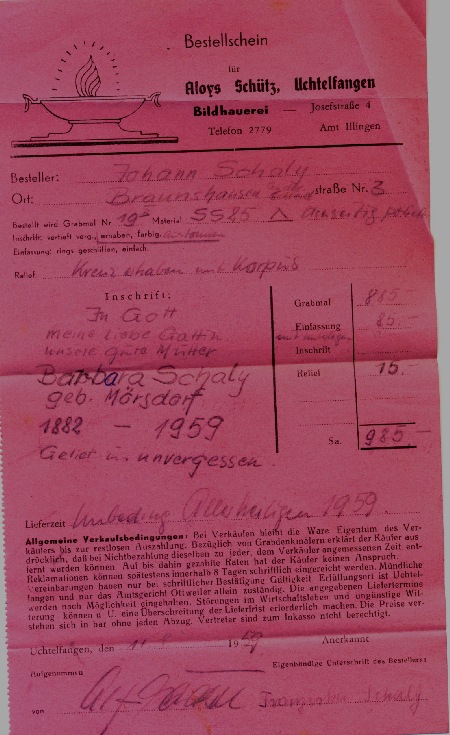 Bestellschein
für
Aloys Schütz, Uchtelfangen
Bildhauerei — Josefstraße 4
Telefon 2779 Amt Illingen
Besteller: Johann Schaly
Ort: Braunshausen straße Nr. 3
Bestellt wird Grabmal Nr. 19 Material SS 85
Inschrift: vertieft verg., erhaben, farbig,
Einfassung: rings geschliffen, einfach
Relief Kreuz erhaben mit Korpus
Inschrift:
In Gott
meine liebe Gattin
unsere gute Mutter
Barbara Schaly
geb. Mörsdorf
1882 – 1959
Geliebt u. unvergessen
Grabmal 885
Einfassung 85.–
Inschrift
Relief 15.–
Sa. 985.–
Lieferzeit Unbedingt Allerheiligen 1959.
Allgemeine Verkaufsbedingungen: Bei Verkäufen bleibt die Ware Eigentum des Ver-
käufers bis zur restlosen Auszahlung. Bezüglich von Grabdenkmälern erklärt der Käufer aus-
drücklich, daß bei Nichtbezahlung dieselben zu jeder, dem Verkäufer angemessenen Zeit ent-
fernt werden können. Auf bis dahin gezahlte Raten hat der Käufer keinen Anspruch.
Reklamationen können spätestens innerhalb 8 Tagen schriftlich eingereicht werden. Mündliche
Vereinbarungen haben nur bei schriftlicher Bestätigung Gültigkeit. Erfüllungsort ist Uchtel-
fangen und nur das Amtsgericht Ottweiler allein zuständig. Die angegebenen Liefertermine
werden nach Möglichkeit eingehalten. Störungen im Wirtschaftsleben und ungünstige Wit-
terung können u. U. eine Überschreitung der Lieferfrist erforderlich machen. Die Preise ver-
stehen sich in bar ohne jeden Abzug. Vertreter sind zum Inkasso nicht berechtigt.
Uchtelfangen, den 1959 Anerkannt
Aufgenommen Eigenhändige Unterschrift des Bestellers
von Schaly